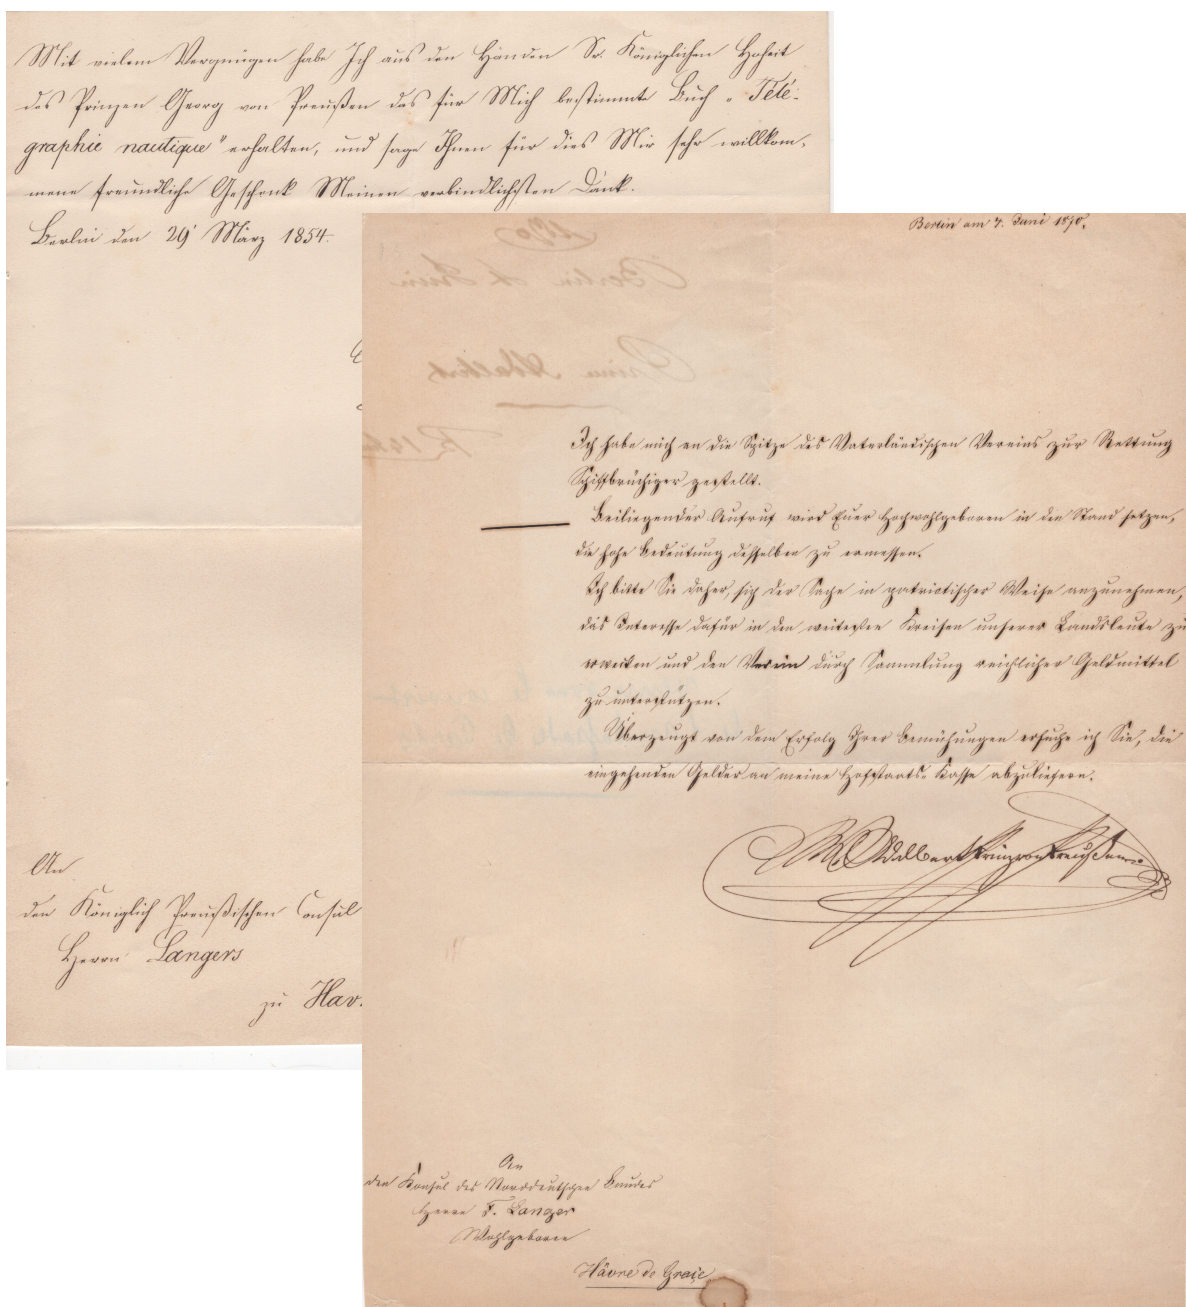 Mit vielem Vergnügen habe Ich aus den Händen Sr. Königlichen Hoheit
des Prinzen Georg von Preußen das für Mich bestimmte Buch „Télé-
graphie nautique" erhalten, und sage Ihnen für dies Mir sehr willkom-
mene freundliche Geschenk Meinen verbindlichsten Dank.
Berlin den 29' März 1854.
An
den Königlich Preußischen Consul
Herrn Langers
zu Hav.
Berlin am 7. Juni 1870.
Ich habe mich an die Spitze des Vaterländischen Vereins zur Rettung
Schiffbrüchiger gestellt.
Beiliegender Aufruf wird Euer Hochwohlgeboren in den Stand setzen,
die hohe Bedeutung desselben zu ermessen.
Ich bitte Sie daher, sich der Sache in patriotischer Weise anzunehmen,
das Interesse dafür in den weitesten Kreisen unserer Landsleute zu
erwecken und den Verein durch Sammlung reichlicher Geldmittel
zu unterstützen.
Überzeugt von dem Erfolg Ihrer Bemühungen ersuche ich Sie, die
eingehenden Gelder an meine Hofstaats-Kasse abzuliefern.
Adalbert Prinz von Preußen
An
den Konsul des Norddeutschen Bundes
Herrn F. Langer
Wohlgeboren
Hâvre de Grace